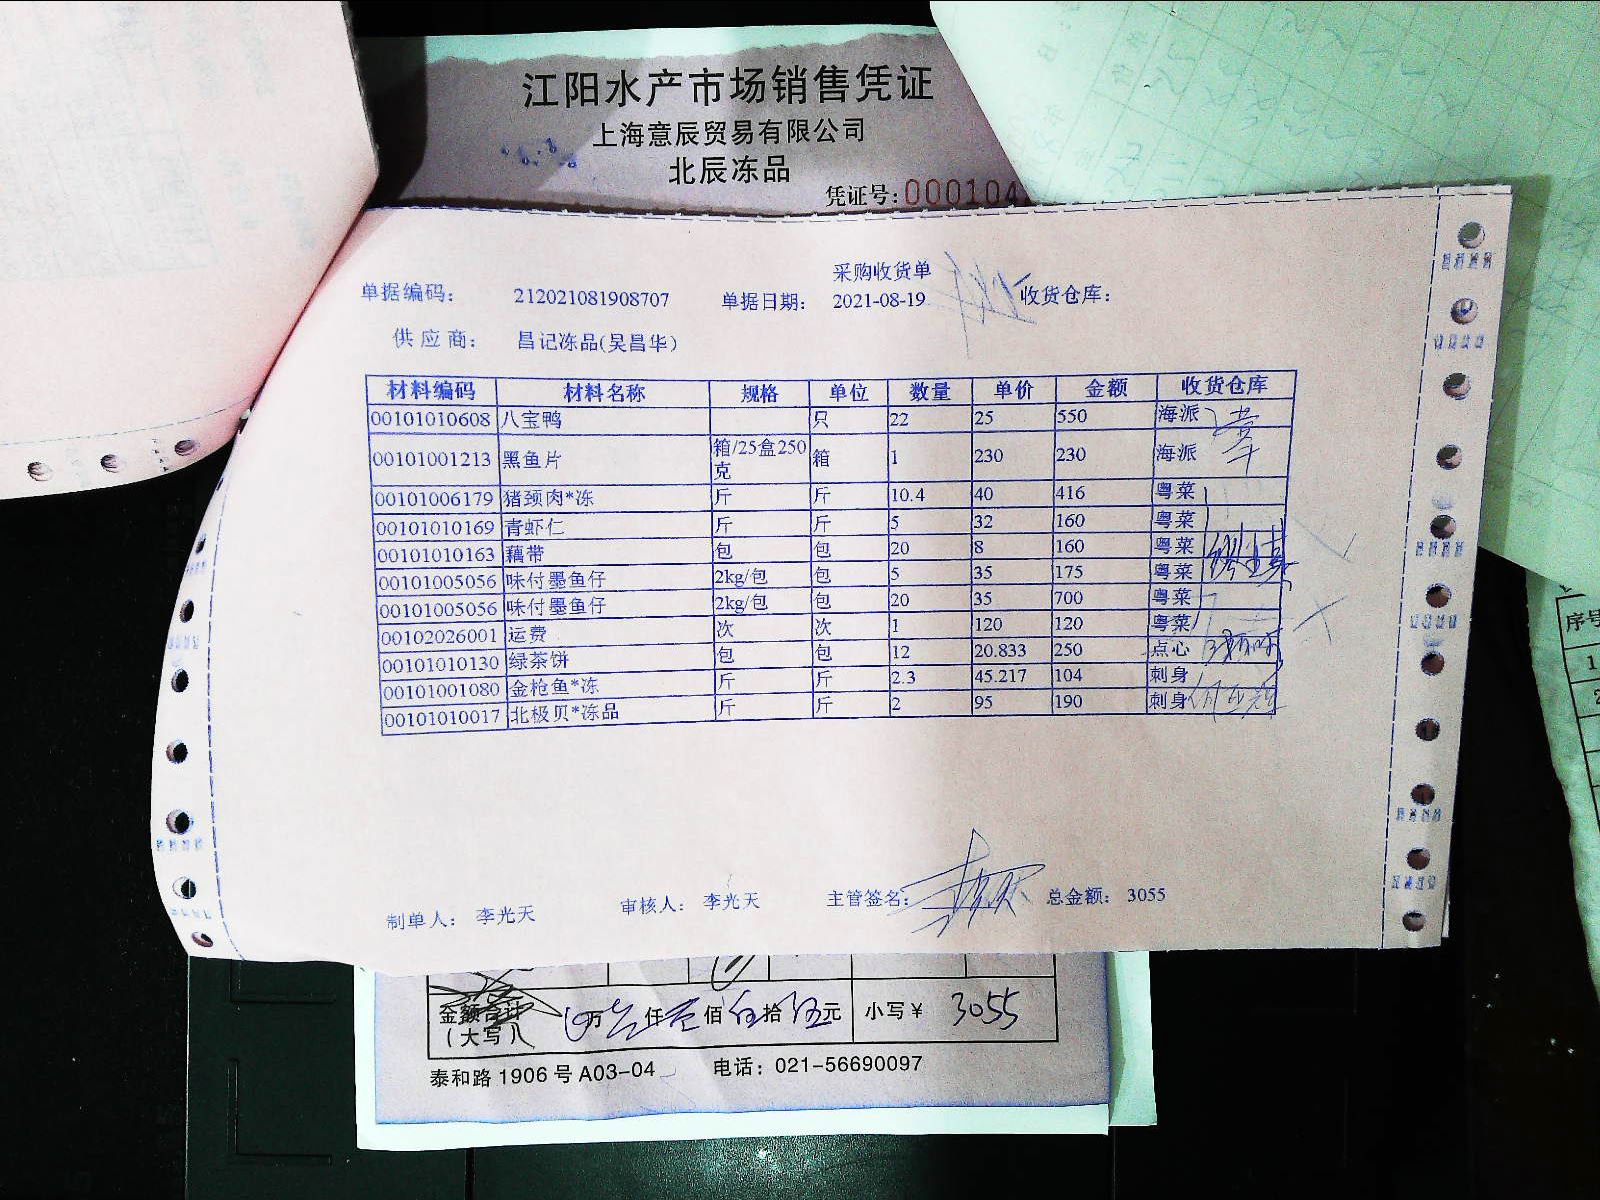 江阳水产市场销售凭证
上海意辰贸易有限公司
北辰冻品
凭证号:000104
采购收货单
单据编码: 212021081908707 单据日期: 2021-08-19 收货仓库:
供应商: 昌记冻品(吴昌华)
材料编码 材料名称 规格 单位 数量 单价 金额 收货仓库
00101010608 八宝鸭 只 22 25 550 海派
00101001213 黑鱼片 箱/25盒250克 箱 1 230 230 海派
00101006179 猪颈肉*冻 斤 斤 10.4 40 416 粤菜
00101010169 青虾仁 斤 斤 5 32 160 粤菜
00101010163 藕带 包 包 20 8 160 粤菜
00101005056 味付墨鱼仔 2kg/包 包 5 35 175 粤菜
00101005056 味付墨鱼仔 2kg/包 包 20 35 700 粤菜
00102026001 运费 次 次 1 120 120 粤菜
00101010130 绿茶饼 包 包 12 20.833 250 点心
00101001080 金枪鱼*冻 斤 斤 2.3 45.217 104 刺身
00101010017 北极贝*冻品 斤 斤 2 95 190 刺身
制单人: 李光天 审核人: 李光天 主管签名: 总金额: 3055
金额合计 万 仟 佰 拾 元 小写¥ 3055
(大写)
泰和路1906号A03-04 电话: 021-56690097
序号
1
2